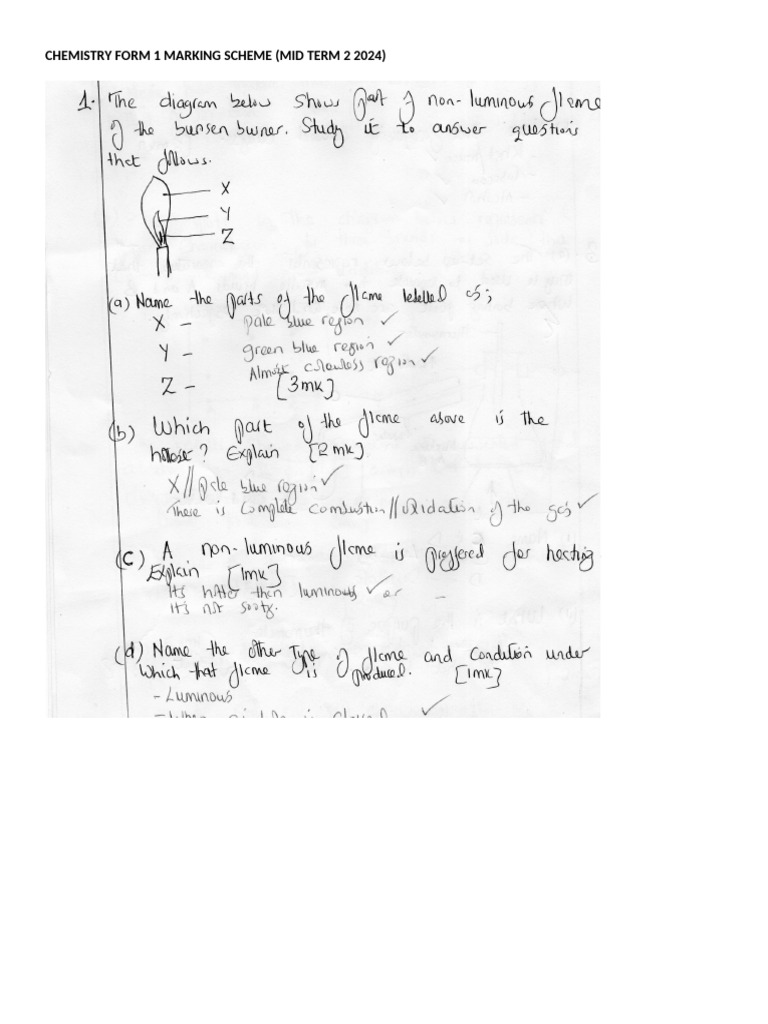 CHEMISTRY FORM 1 MARKING SCHEME (MID TERM 2 2024)
1. The diagram below show part of non-luminous flame
of the bunsen burner. Study it to answer questions
that follows.
X
Y
Z
(a) Name the parts of the flame labelled as;
X - pale blue region ✓
Y - green blue region ✓
Almost colourless region ✓
Z - [3mk]
(b) Which part of the flame above is the
hottest? Explain [2mk]
X // pale blue region ✓
There is complete combustion // oxidation of the gas ✓
(c) A non-luminous flame is preffered for heating
Explain [1mk]
It's hotter than luminous ✓ or -
It's not sooty.
(d) Name the other Type of flame and Condition under
which that flame is produced. [1mk]
- Luminous
- When is closed ✓